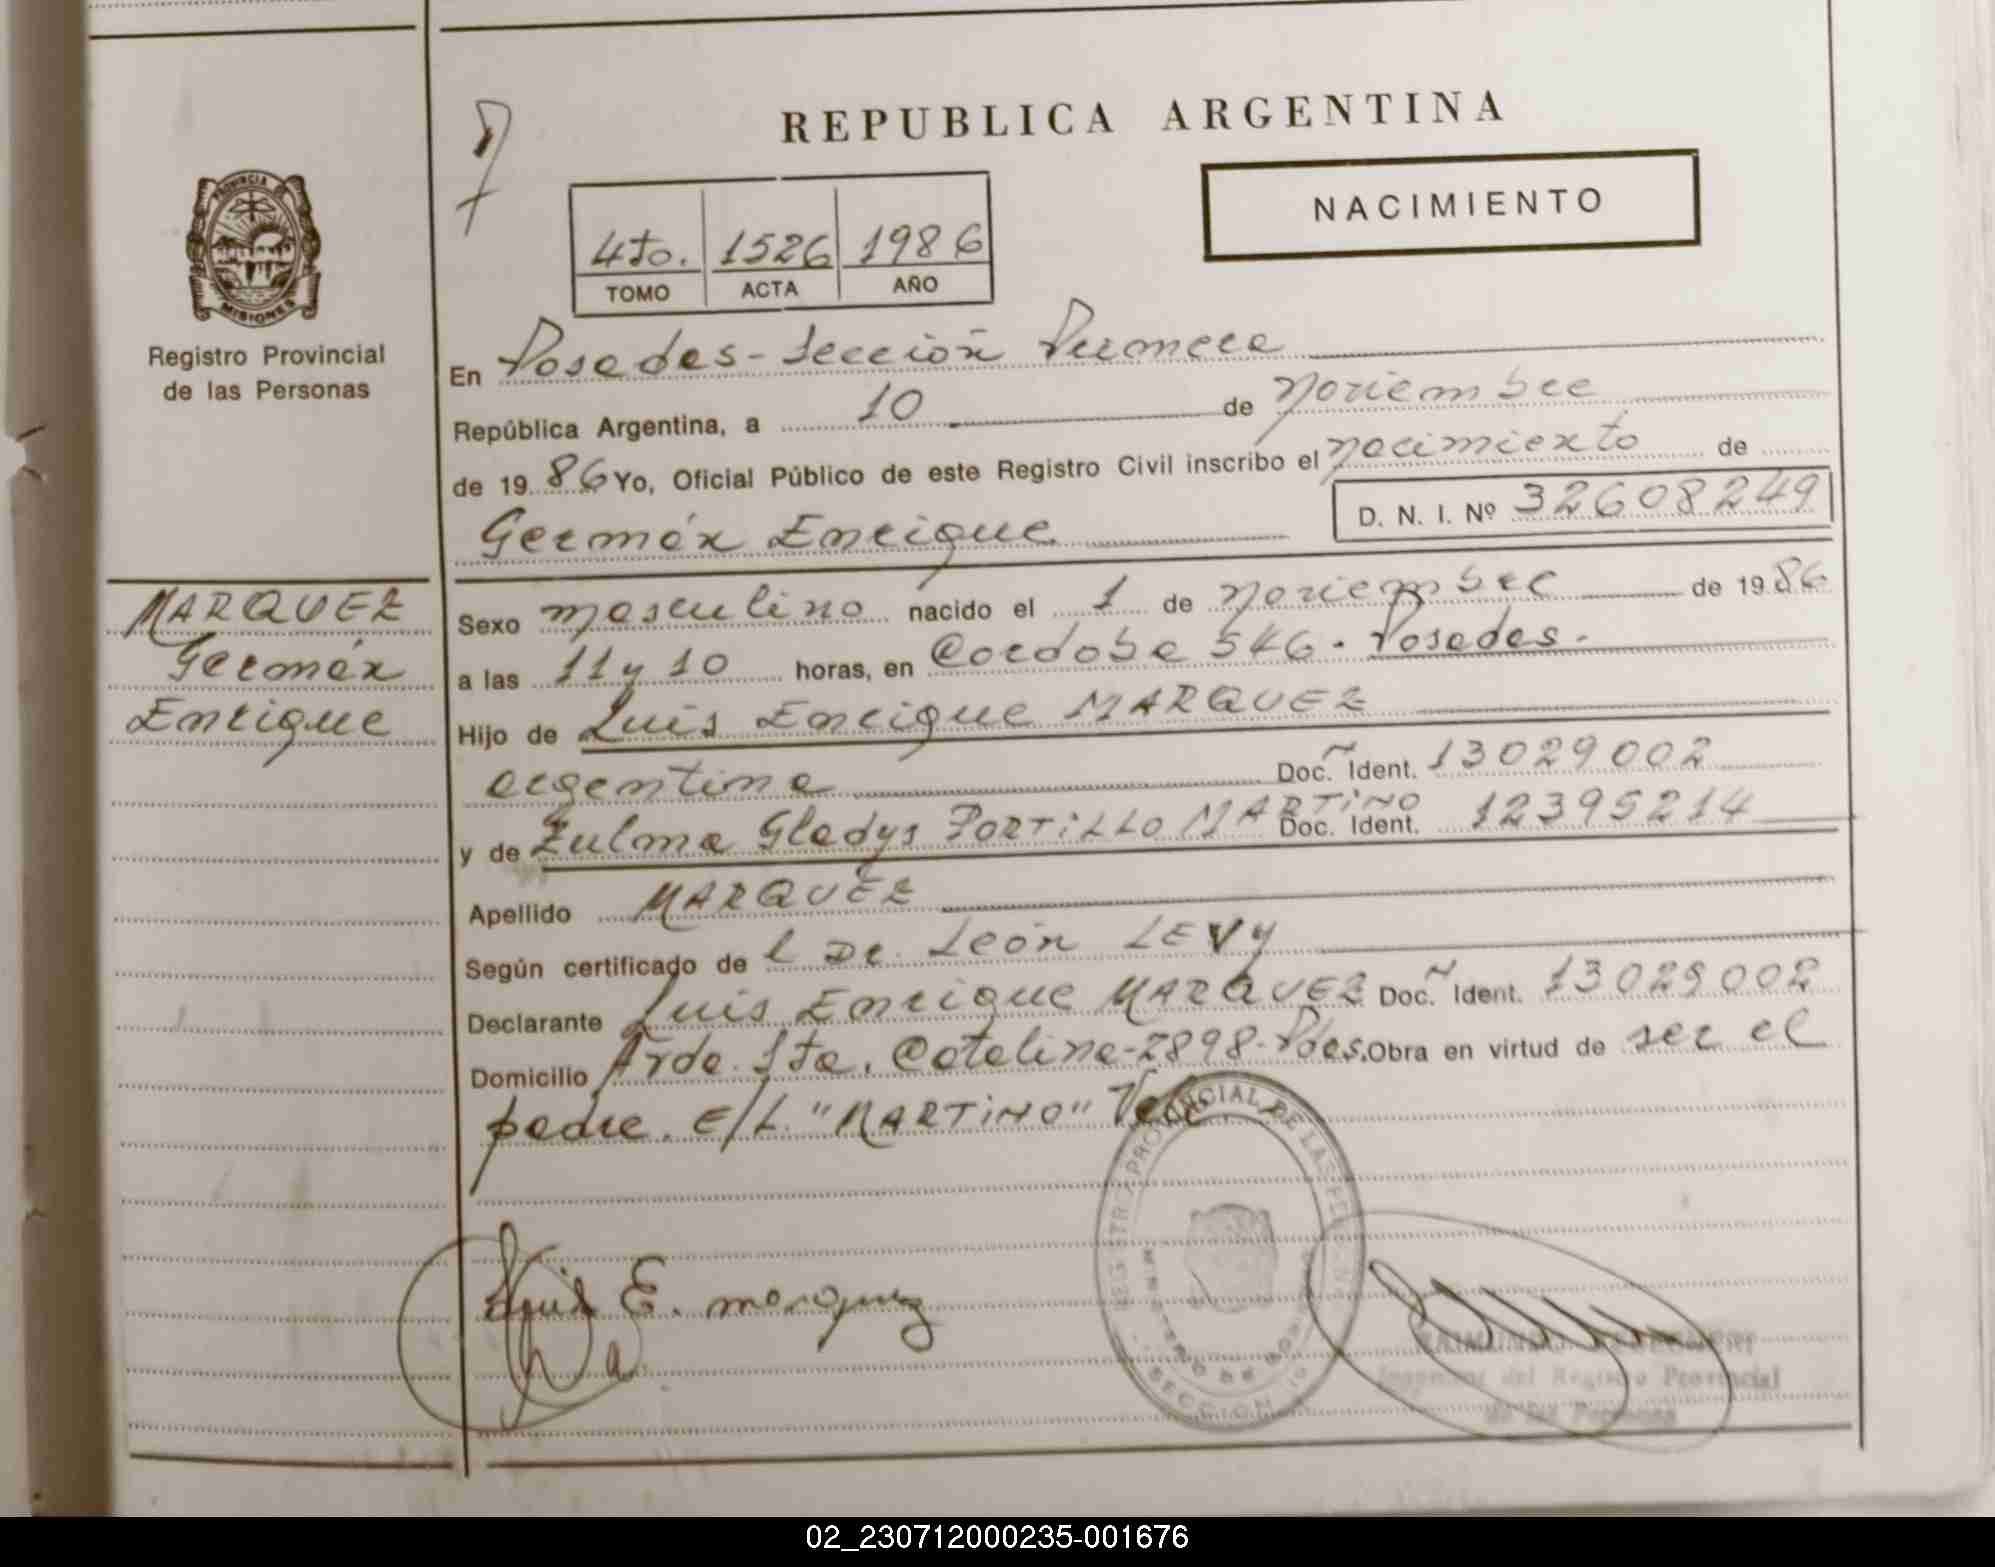 REPUBLICA ARGENTINA
NACIMIENTO
4to. 1526 1986
TOMO ACTA AÑO
PROVINCIA DE MISIONES
Registro Provincial
de las Personas
En Posadas - Sección Primera
República Argentina, a 10 de Noviembre
de 19 86 Yo, Oficial Público de este Registro Civil inscribo el nacimiento de
Germán Enrique D. N. I. Nº 32608249
MARQUEZ
Germán
Enrique
Sexo masculino nacido el 1 de Noviembre de 19 86
a las 11 y 10 horas, en Cordoba 546 - Posadas.
Hijo de Luis Enrique MARQUEZ
argentina Doc. Ident. 13029002
y de Zulma Gladys PORTILLO MARTINO Doc. Ident. 12395214
Apellido MARQUEZ
Según certificado de l Dr. León LEVY
Declarante Luis Enrique MARQUEZ Doc. Ident. 13029002
Domicilio Avda. Sta. Catalina - 2898 - Pdas. Obra en virtud de ser el
padre. E/L. "MARTINO" Vale
REGISTRO PROVINCIAL DE LAS PERSONAS
SECCION 1a
Luis E. Marquez
Inspector del Registro Provincial
de las Personas
02_230712000235-001676